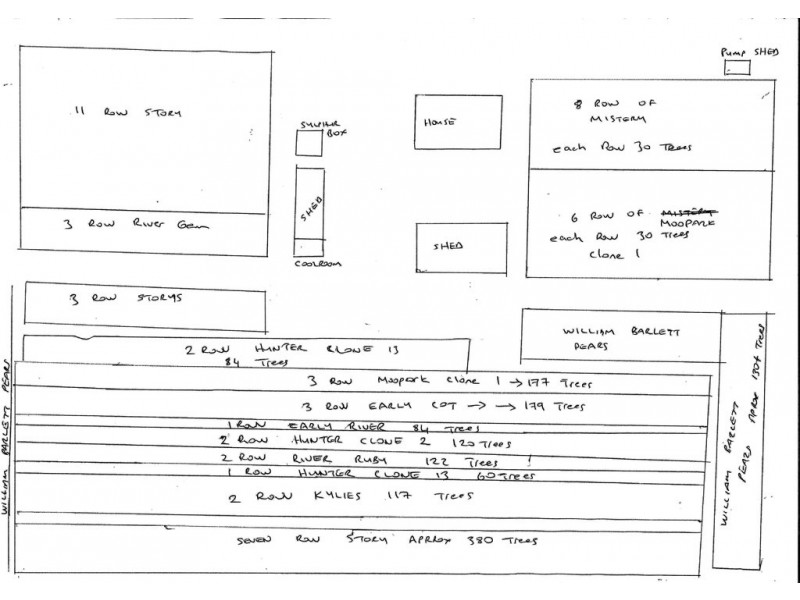 PUMP SHED
11 ROW STORY
SULPHUR
BOX
HOUSE
8 ROW OF
MISTERY
each Row 30 Trees
3 ROW RIVER Gem
SHED
COOLROOM
SHED
6 ROW OF MISTERY
MOOPARK
each Row 30 Trees
Clone 1
3 ROW STORYS
WILLIAM BARLETT
PEARS
2 ROW HUNTER CLONE 13
84 Trees
3 ROW MOOPARK Clone 1 → 177 Trees
3 ROW EARLY COT → → 179 Trees
1 ROW EARLY RIVER 84 Trees
2 ROW HUNTER CLONE 2 120 Trees
2 ROW RIVER RUBY 122 Trees
1 ROW HUNTER CLONE 13 60 Trees
2 ROW KYLIES 117 Trees
SEVEN ROW STORY APRROX 380 Trees
WILLIAM BARLETT PEARS
WILLIAM BARLETT
PEARS APROX 1307 Trees